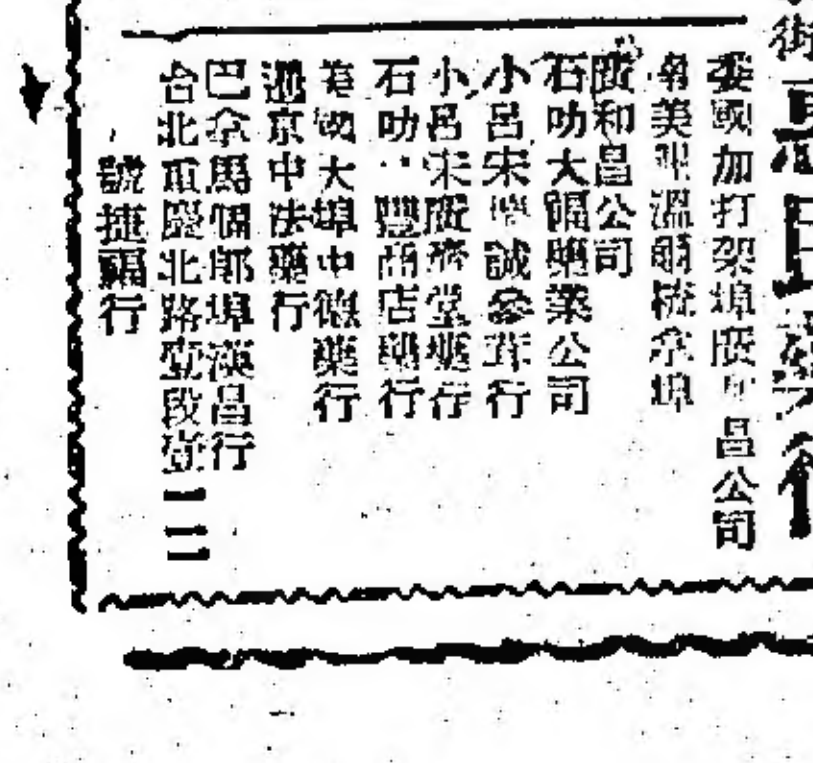 街
委國加打架埠廣 昌公司
南美 溫 埠
廣和昌公司
石叻大福藥業公司
小呂宋 誠參茸行
小呂宋廣濟堂藥行
石叻 豐商店藥行
美國大埠中德藥行
暹京中法藥行
巴拿馬個郎埠漢昌行
台北重慶北路壹段壹一二
號捷福行